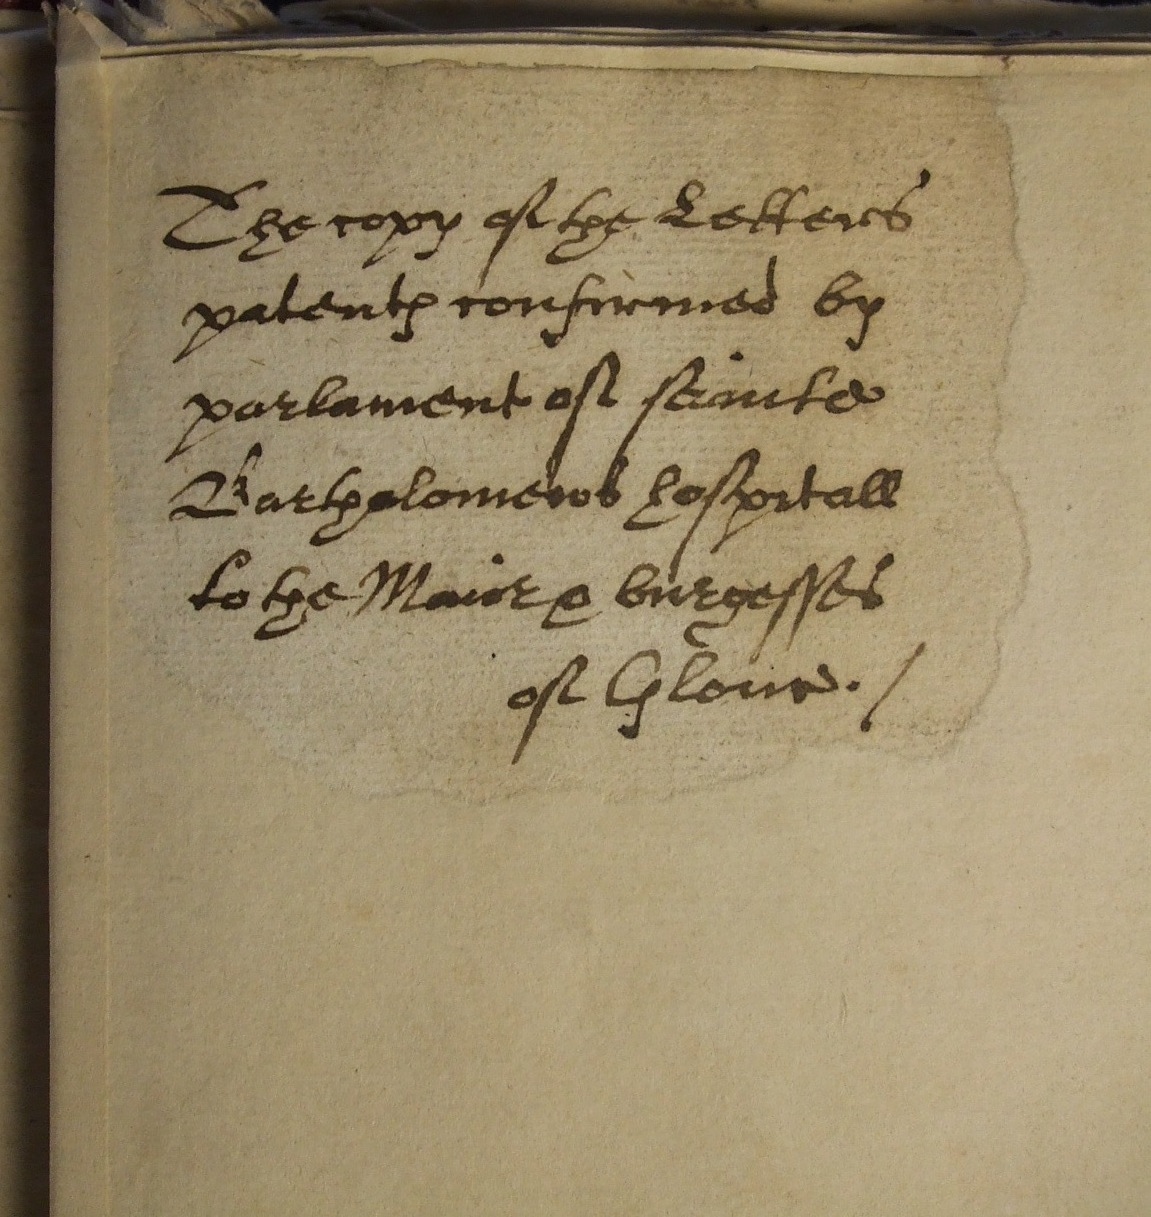 The copy of the Letters
patentꝭ confirmed by
parlament of sainte
Bartholomews hospitall
to the Maior & burgesses
of Glouc. /